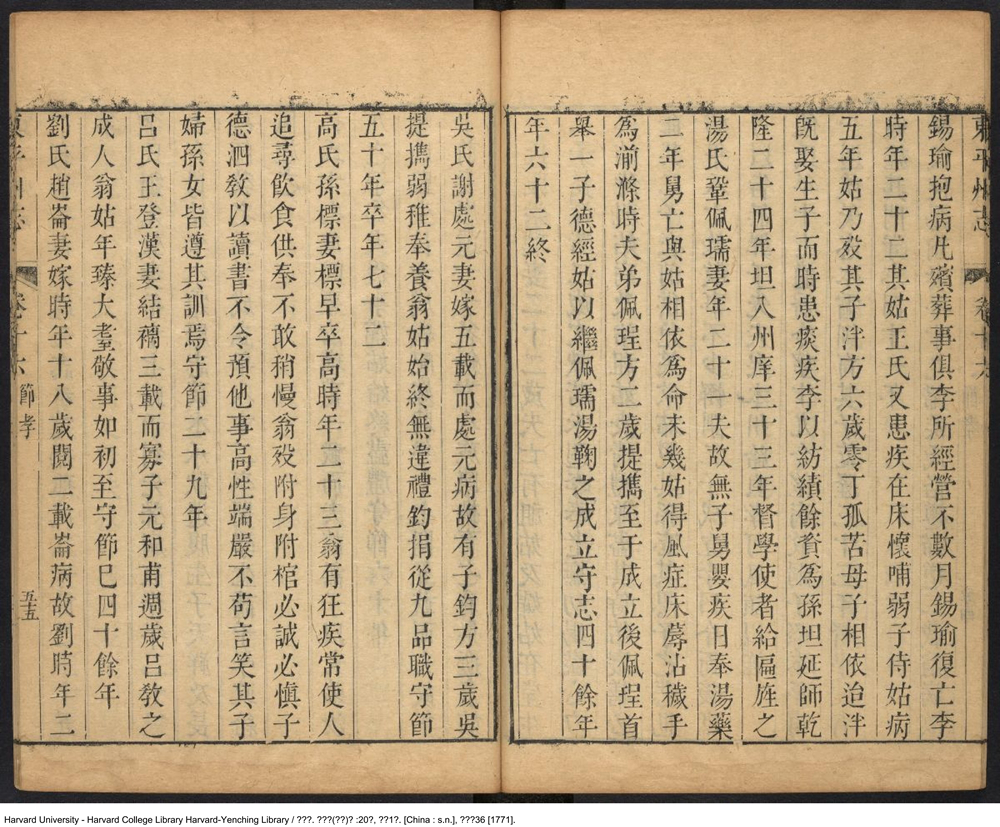 東平州志 卷十六
錫瑜抱病凡殯葬事俱李所經營不數月錫瑜復亡李
時年二十二其姑王氏又患疾在床懷哺弱子侍姑病
五年姑乃歿其子泮方六歲零丁孤苦母子相依迨泮
旣娶生子而時患痰疾李以紡績餘貲爲孫坦延師乾
隆二十四年坦入州庠三十三年督學使者給匾旌之
湯氏鞏佩瓀妻年二十一夫故無子舅嬰疾日奉湯藥
二年舅亡與姑相依爲命未幾姑得風症床蓐沾穢手
爲湔滌時夫弟佩珵方二歲提攜至于成立後佩珵首
舉一子德經姑以繼佩瓀湯鞠之成立守志四十餘年
年六十二終
吳氏謝處元妻嫁五載而處元病故有子鈞方三歲吳
提攜弱稚奉養翁姑始終無違禮鈞捐從九品職守節
五十年卒年七十二
高氏孫標妻標早卒高時年二十三翁有狂疾常使人
追尋飲食供奉不敢稍慢翁歿附身附棺必誠必慎子
德泗敎以讀書不令預他事高性端嚴不苟言笑其子
婦孫女皆遵其訓焉守節二十九年
呂氏王登漢妻結褵三載而寡子元和甫週歲呂敎之
成人翁姑年臻大耋敬事如初至守節巳四十餘年
劉氏趙崙妻嫁時年十八歲閱二載崙病故劉時年二
東平州志 卷十六 節孝 五五
Harvard University - Harvard College Library Harvard-Yenching Library / ???. ???(??)? :20?, ??1?. [China : s.n.], ???36 [1771].